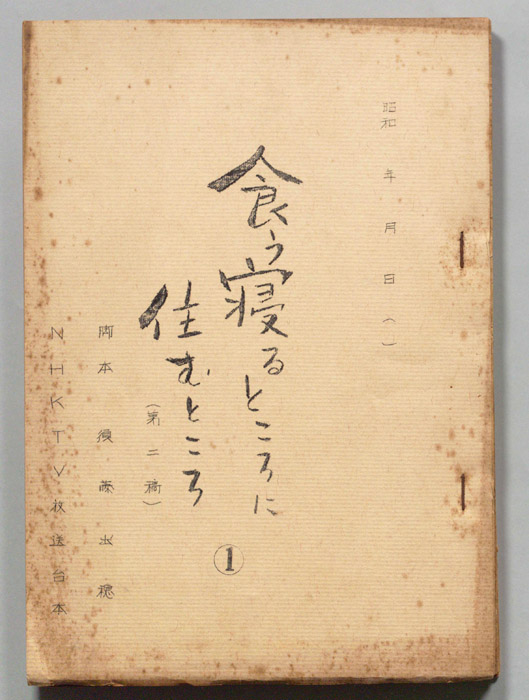 昭和 年 月 日（ ）
食う寝るところに
住むところ
（第二稿）
①
脚本 須藤出穂
NHKTV放送台本